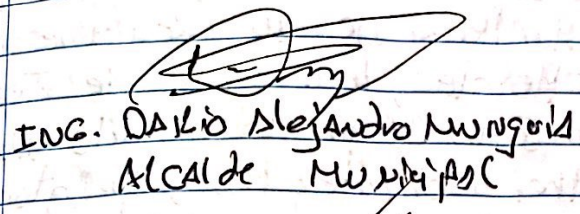 ING. DARIO AlejANdro MuNguiA
AlcAlde MuNicipAl